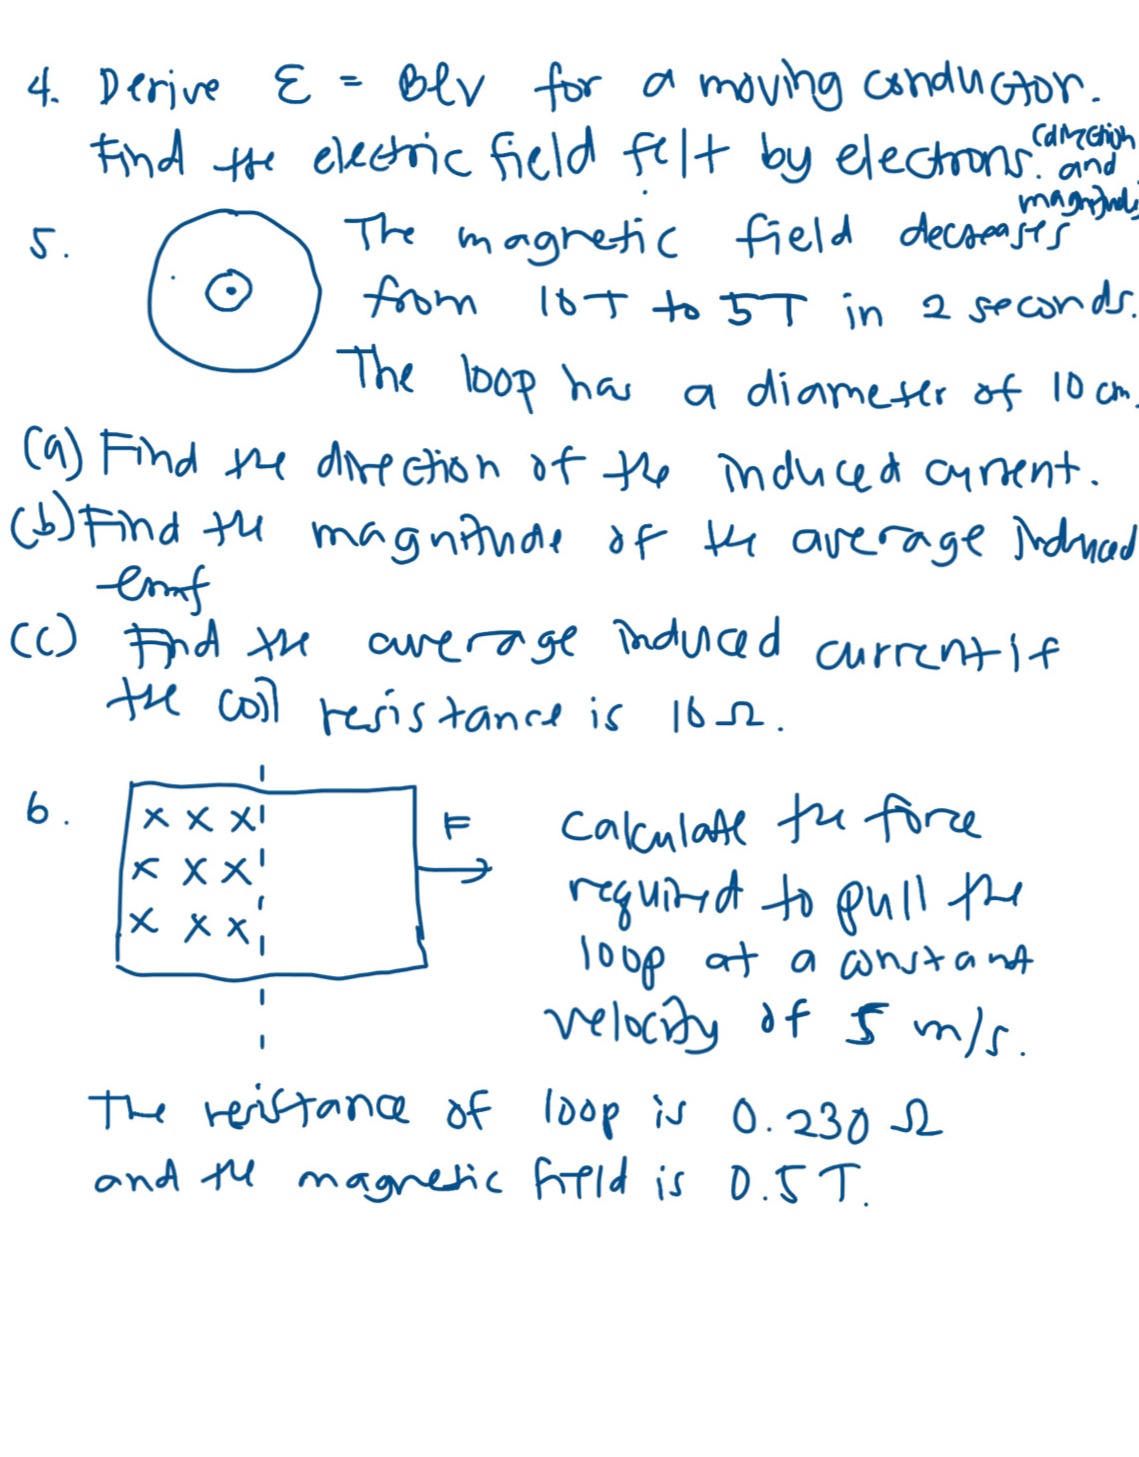 4. Derive ε = Blv for a moving conductor.
Find the electric field felt by electrons. (direction and magnitude
5. The magnetic field decreases
from 10T to 5T in 2 seconds.
The loop has a diameter of 10 cm.
(a) Find the direction of the induced current.
(b) Find the magnitude of the average induced
emf
(c) Find the average induced current if
the coil resistance is 10 Ω.
6. x x x
x x x
x x x
F
Calculate the force
required to pull the
loop at a constant
velocity of 5 m/s.
The resistance of loop is 0.230 Ω
and the magnetic field is 0.5 T.